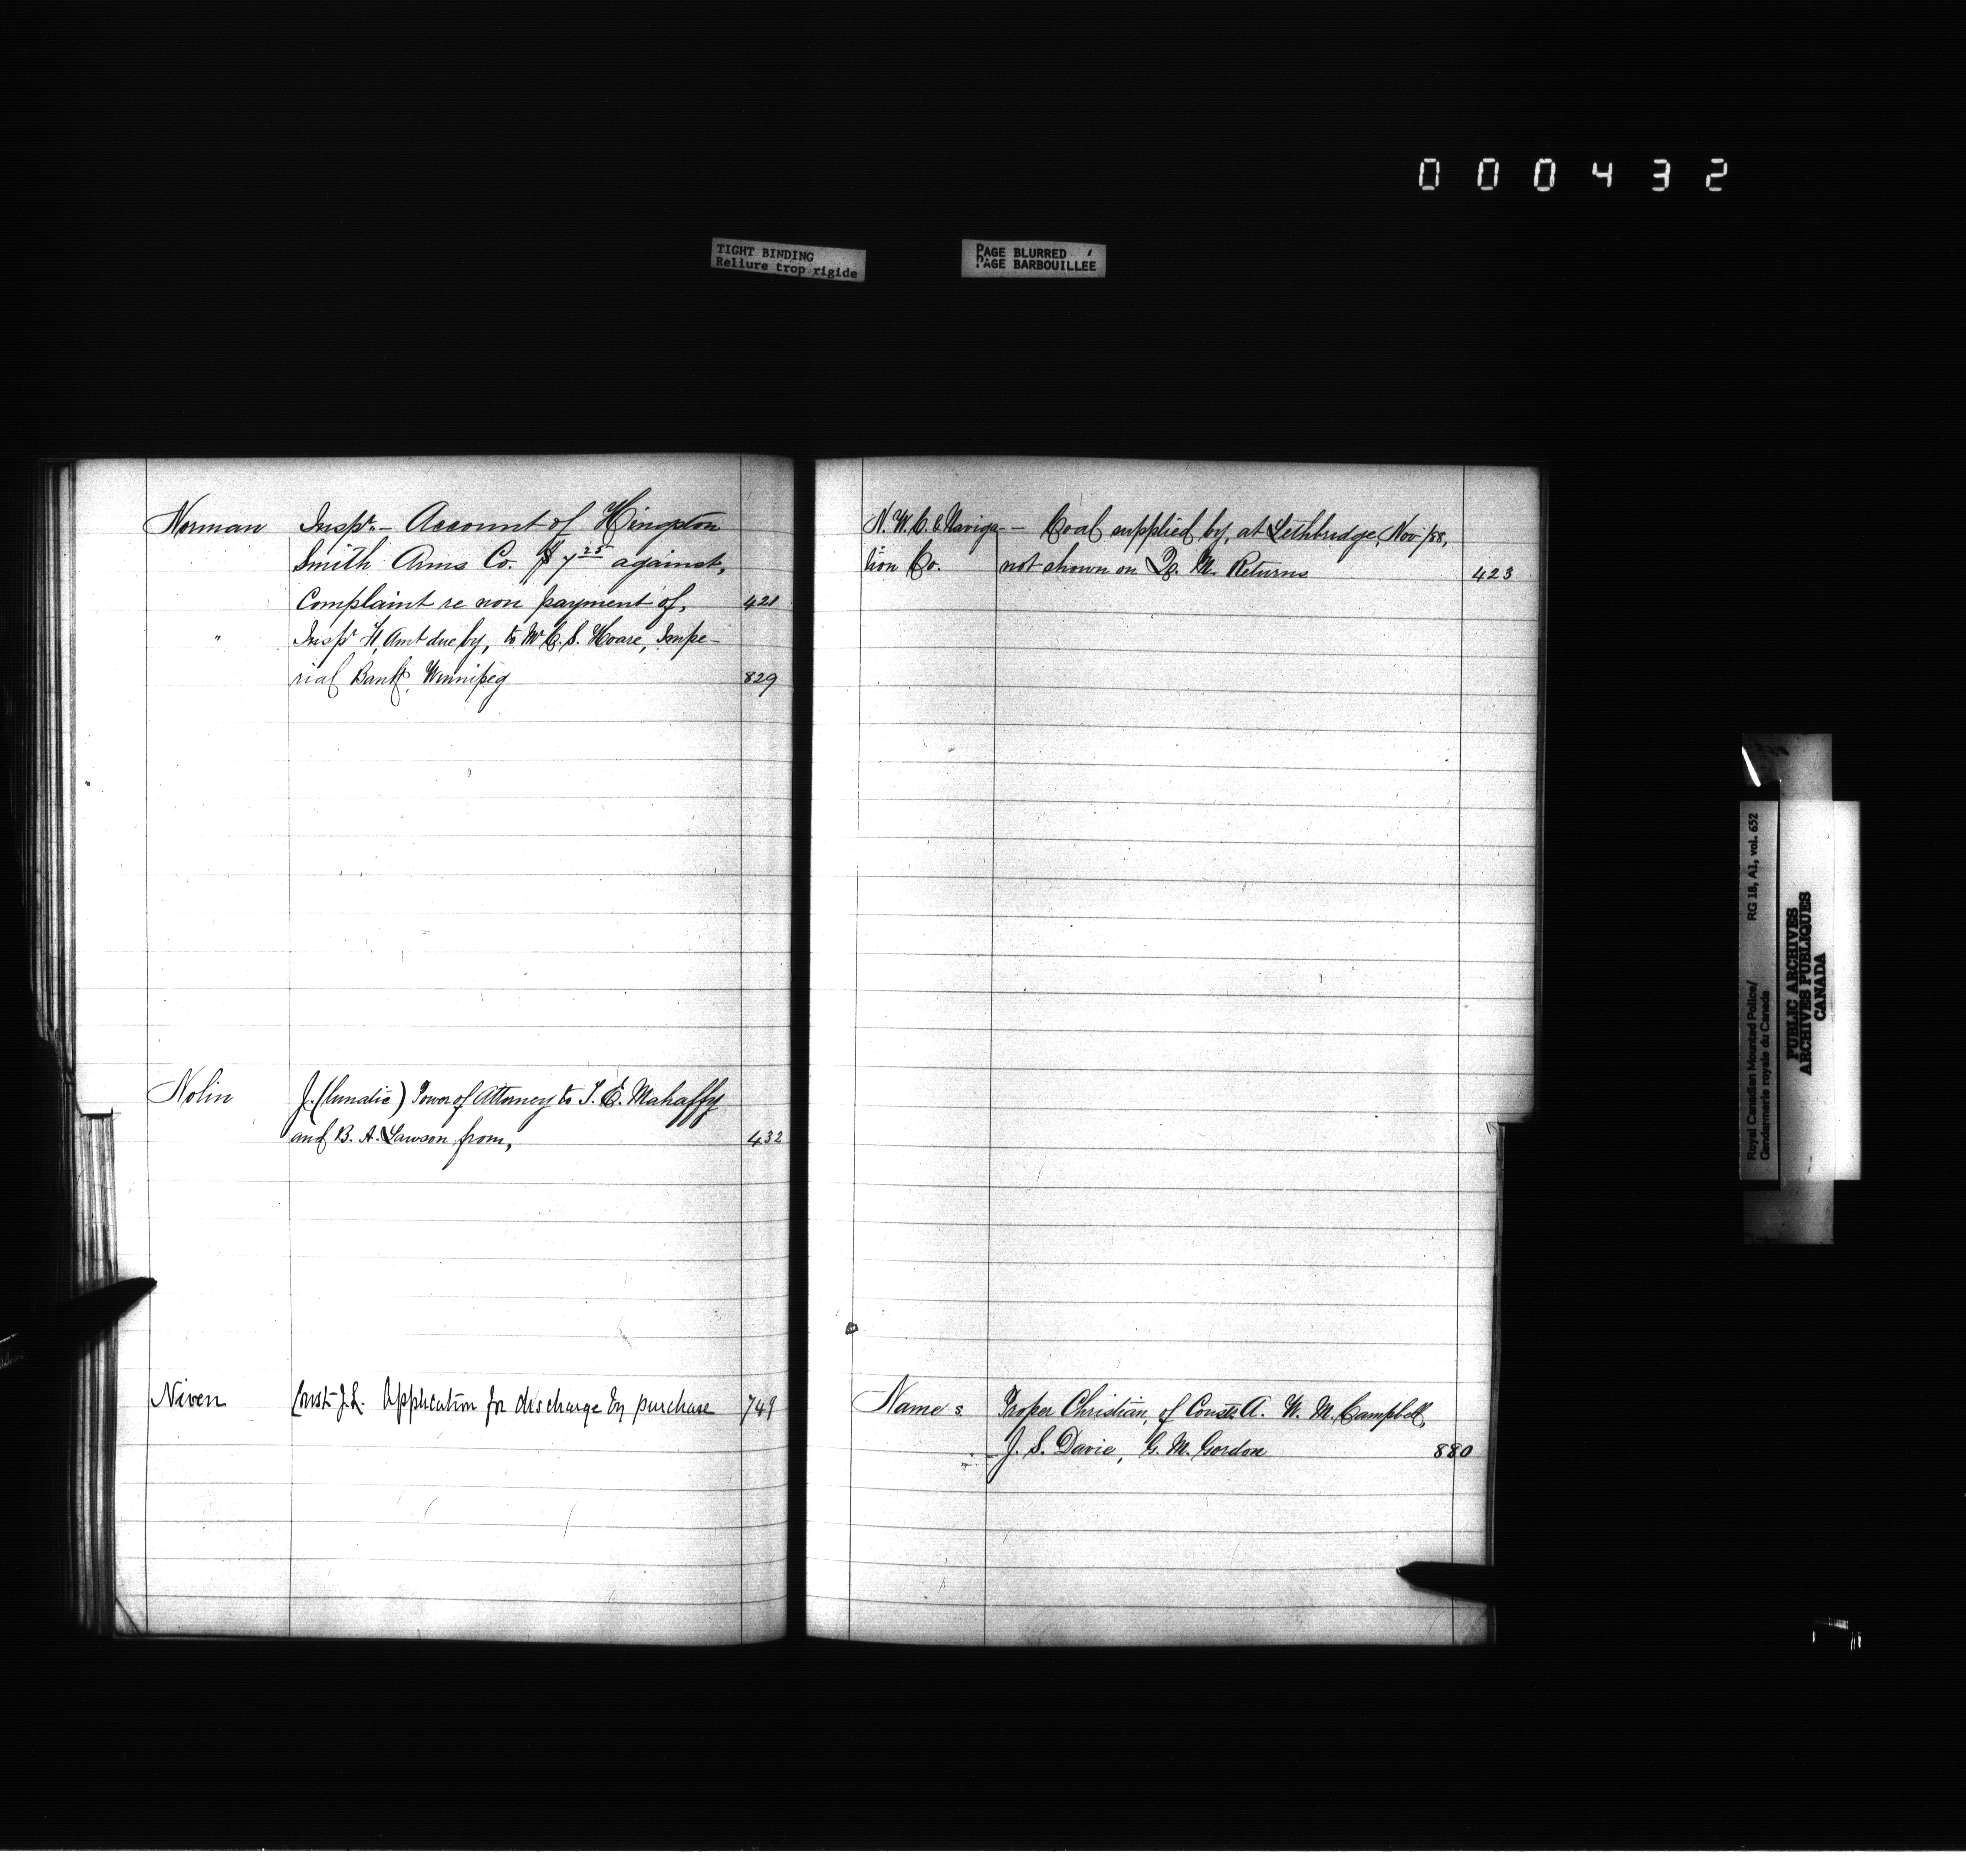 000432
TIGHT BINDING
Reliure trop rigide
PAGE BLURRED
PAGE BARBOUILLEE
Norman Inspr. – Account of Hingston
Smith Arms Co. $7 25 against,
Complaint re non payment of, 421
" Inspr F, Amt due by, to Mr C. S. Hoare, Impe-
rial Bank, Winnipeg 829
Nolin J. (lunatic) Power of Attorney to J. E. Mahaffy
and B. A. Lawson from, 432
Niven Const J. L. Application for discharge by purchase 749
N. W. C. & Naviga- – Coal supplied by, at Lethbridge, Nov/88,
tion Co. not shown on Q. M. Returns 423
Names Proper Christian, of Consts. A. W. M. Campbell,
J. S. Davie, G. M. Gordon 880
Royal Canadian Mounted Police/ RG 18, A1, vol. 652
Gendarmerie royale du Canada
PUBLIC ARCHIVES
ARCHIVES PUBLIQUES
CANADA